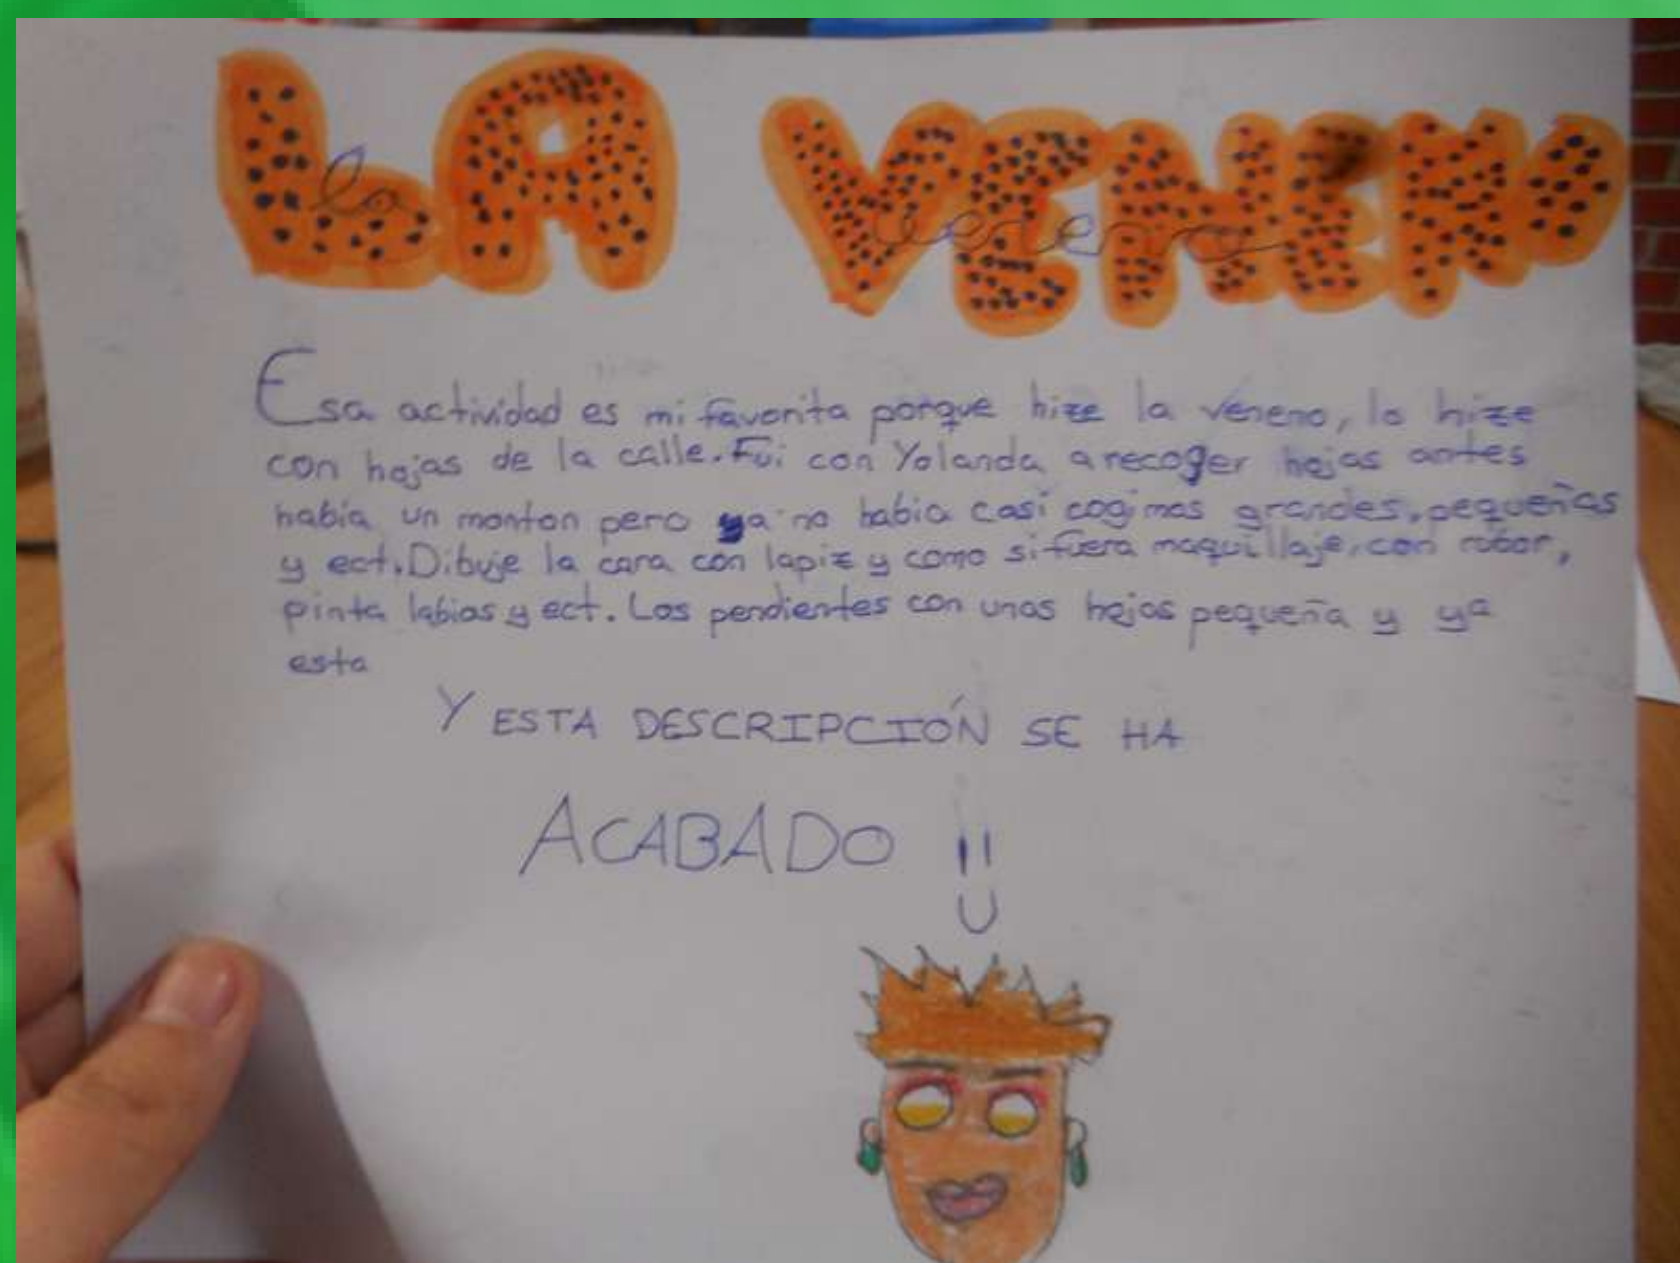 LA VENENO
la veneno
Esa actividad es mi favorita porque hize la veneno, lo hize
con hojas de la calle. Fui con Yolanda a recoger hojas antes
habia un monton pero ya no habia casi cogimos grandes, pequeñas
y ect. Dibuje la cara con lapiz y como si fuera maquillaje, con robor,
pinta labios y ect. Los pendientes con unas hojas pequeña y ya
esta
Y ESTA DESCRIPCIÓN SE HA
ACABADO